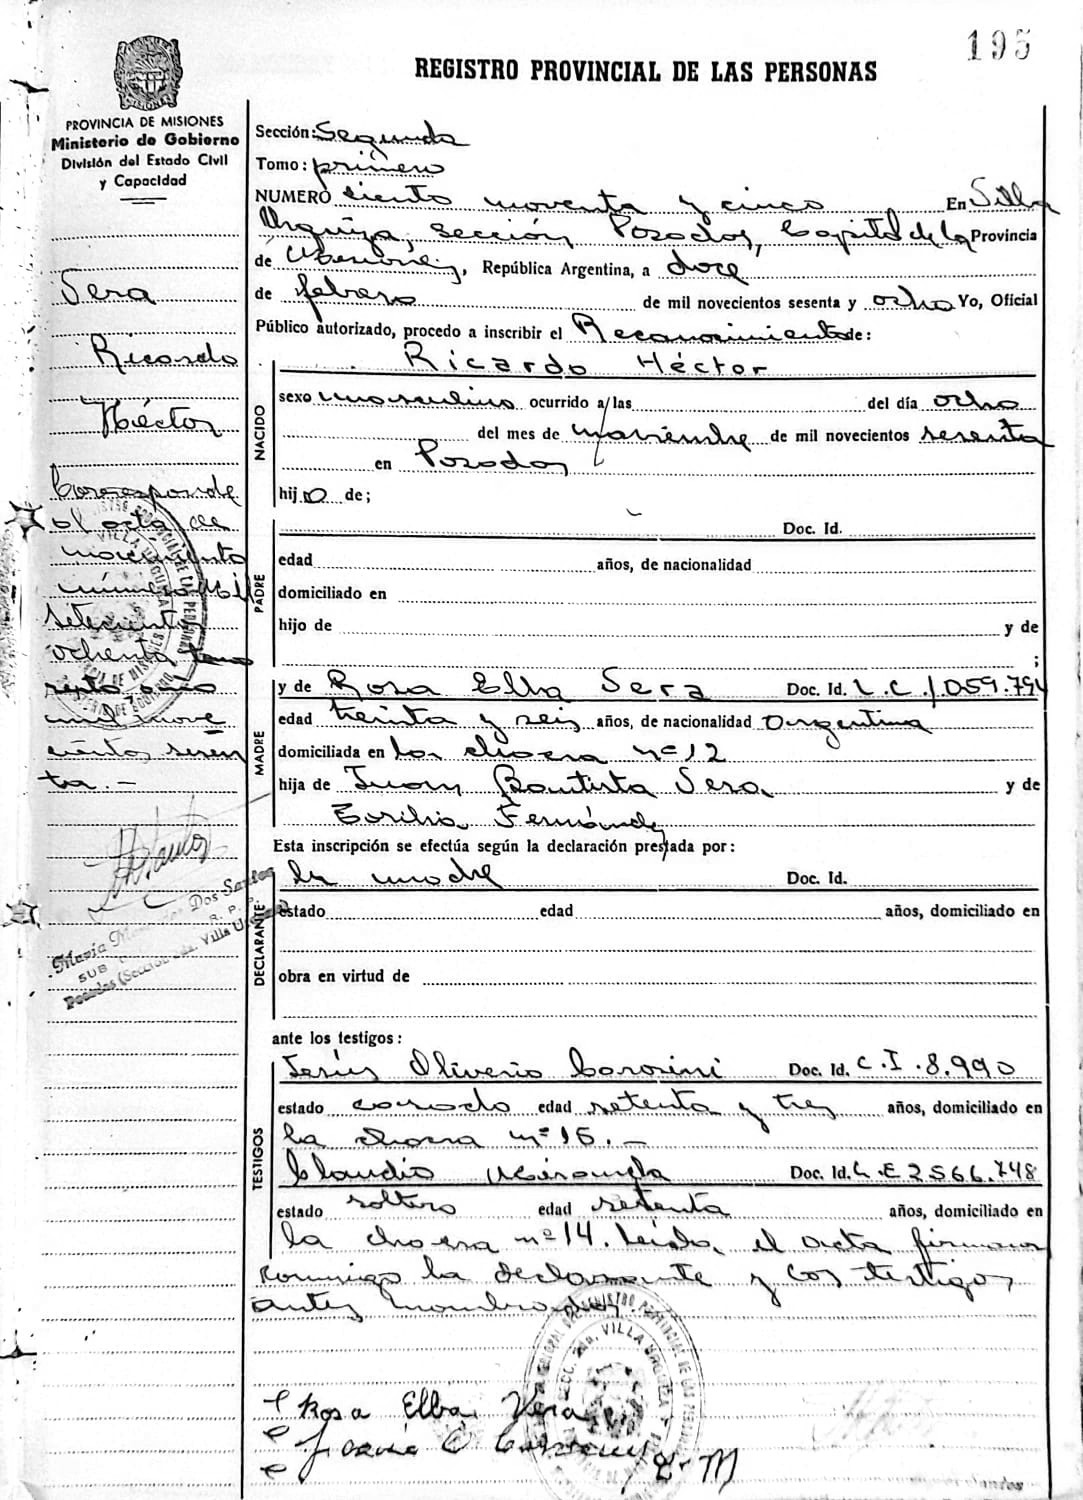 195
REGISTRO PROVINCIAL DE LAS PERSONAS
PROVINCIA DE MISIONES
Ministerio de Gobierno
División del Estado Civil
y Capacidad
Sera
Ricardo
Héctor
Corresponde
al acta de
nacimiento
número Mil
setecientos
ochenta
septo, año
mil nove
cientos sesen
ta.-
Sección: Segunda
Tomo: primero
NUMERO ciento noventa y cinco En Villa
Urquiza, Sección Posadas, Capital de la Provincia
de Misiones, República Argentina, a doce
de febrero de mil novecientos sesenta y ocho Yo, Oficial
Público autorizado, procedo a inscribir el Reconocimiento de:
NACIDO
Ricardo Héctor
sexo masculino ocurrido a/las del día ocho
del mes de noviembre de mil novecientos sesenta
en Posadas
hijo de;
PADRE
Doc. Id.
edad años, de nacionalidad
domiciliado en
hijo de y de
;
MADRE
y de Rosa Elba Sera Doc. Id. L.C. 1.059.794
edad treinta y seis años, de nacionalidad Argentina
domiciliada en la chacra nº 12
hija de Juan Bautista Sera y de
Fernández
Esta inscripción se efectúa según la declaración prestada por:
DECLARANTE
la madre Doc. Id.
estado edad años, domiciliado en
obra en virtud de
ante los testigos:
TESTIGOS
Jesús Oliverio Doc. Id. C.I. 8.990
estado casado edad setenta y tres años, domiciliado en
la chacra nº 16.-
Claudio Miranda Doc. Id. L.E 2566.748
estado soltero edad setenta años, domiciliado en
la chacra nº 14. Leída el acta firman
conmigo la declarante y los testigos
antes nombrados
Rosa Elba Vera